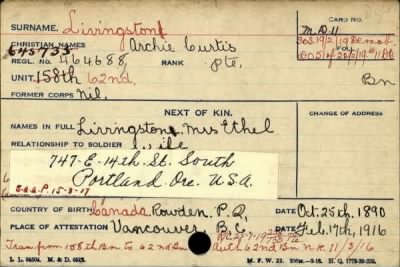 SURNAME. Livingstone
CARD NO.
CHRISTIAN NAMES Archie Curtis
M.D. 11
645733
REGL. NO. 464688 RANK Pte.
FOL.
UNIT. 158th 62nd. Bn
FORMER CORPS Nil.
NEXT OF KIN.
CHANGE OF ADDRESS
NAMES IN FULL Livingstone, Mrs Ethel
RELATIONSHIP TO SOLDIER Wife
747-E-14th St. South
Portland Ore. U.S.A.
COUNTRY OF BIRTH Canada Rowden P.Q. Oct. 25th. 1890
PLACE OF ATTESTATION Vancouver, B.C. Feb. 17th, 1916
Trans from 158th Bn to 62nd Bn Auth 62nd Bn N.R. 11/3/16
L. L. 66504. M. & D. 6615.
M. F. W. 22.